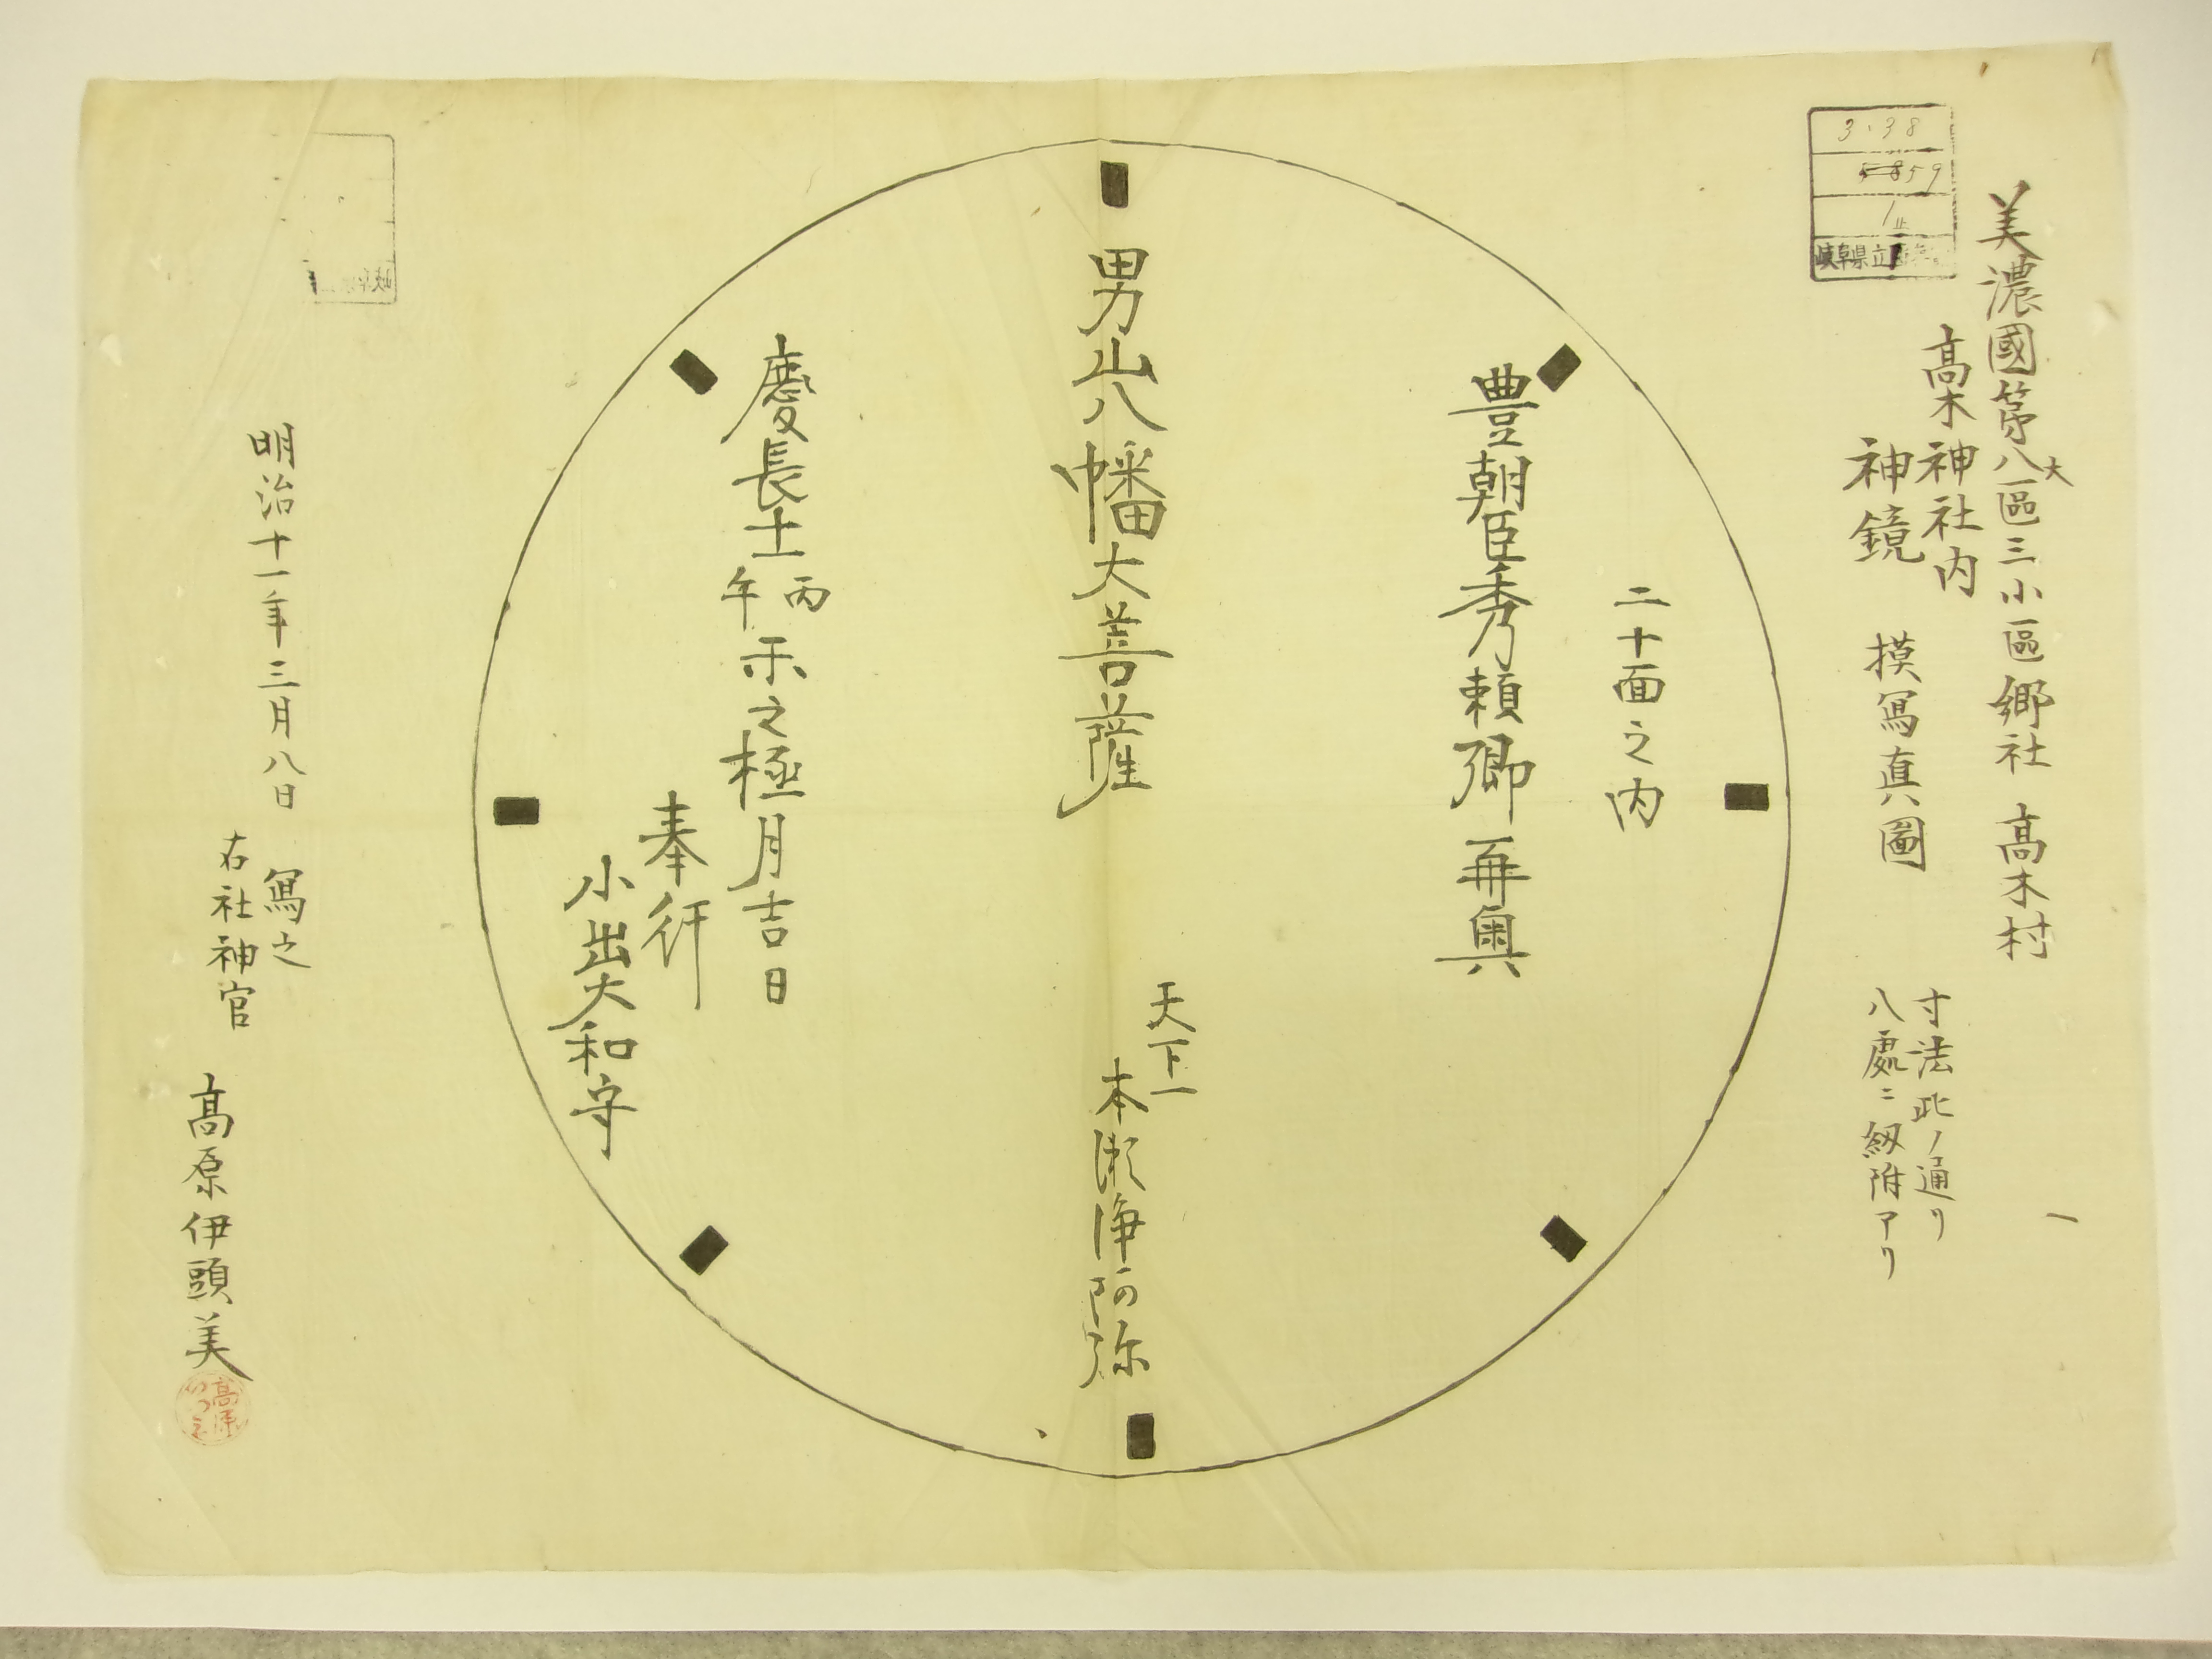 美濃國第八大區三小區郷社 髙木村
髙木神社内
神鏡 摸冩真圖
寸法此ノ通リ
八處ニ釼附アリ
3.38
859
1
岐阜県立
二十面之内
豊朝臣秀頼卿再興
男山八幡大菩薩
天下一
本瀬浄阿弥
慶長十一丙午示之極月吉日
奉行
小出大和守
明治十一年三月八日 冩之
右社神官 髙原伊頭美